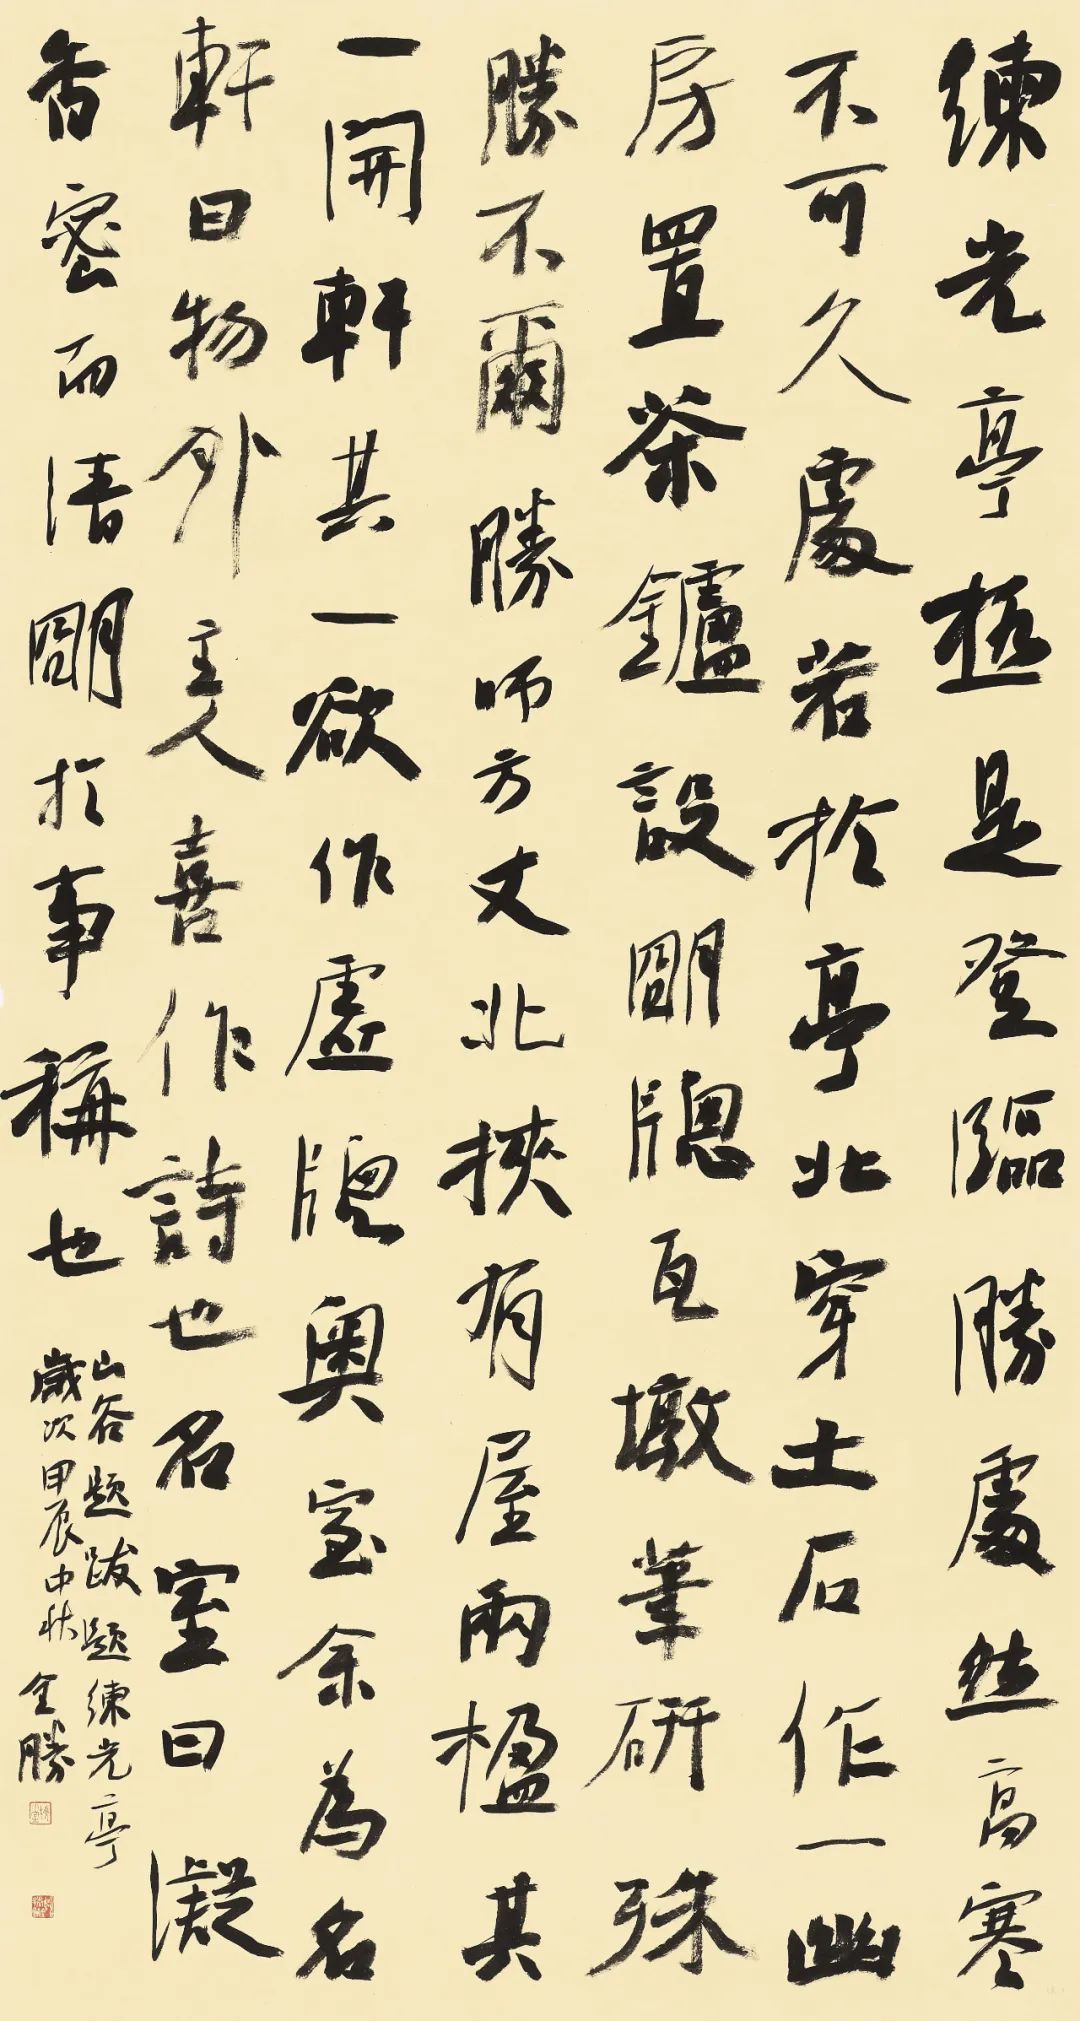 練光亭極是登臨勝處然高寒
不可久處若於亭北穿土石作一幽
房置茶鑪設朙牕瓦墩筆研殊
勝不爾勝師方丈北挾有屋兩楹其
一開軒其一欲作虛牕奧室余為名
軒曰物外主人喜作詩也名室曰凝
香密而清朙於事稱也
山谷題跋題練光亭
歲次甲辰中秋全勝